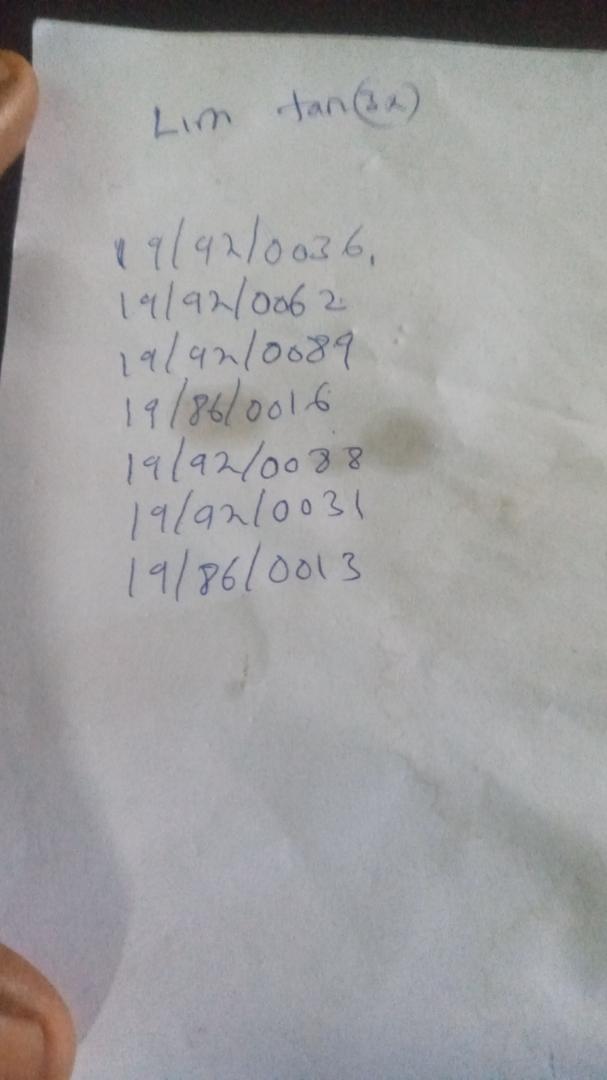 Lim tan(3x)
19/92/0036.
19/92/0062
19/92/0089
19/86/0016
19/92/0088
19/92/0031
19/86/0013